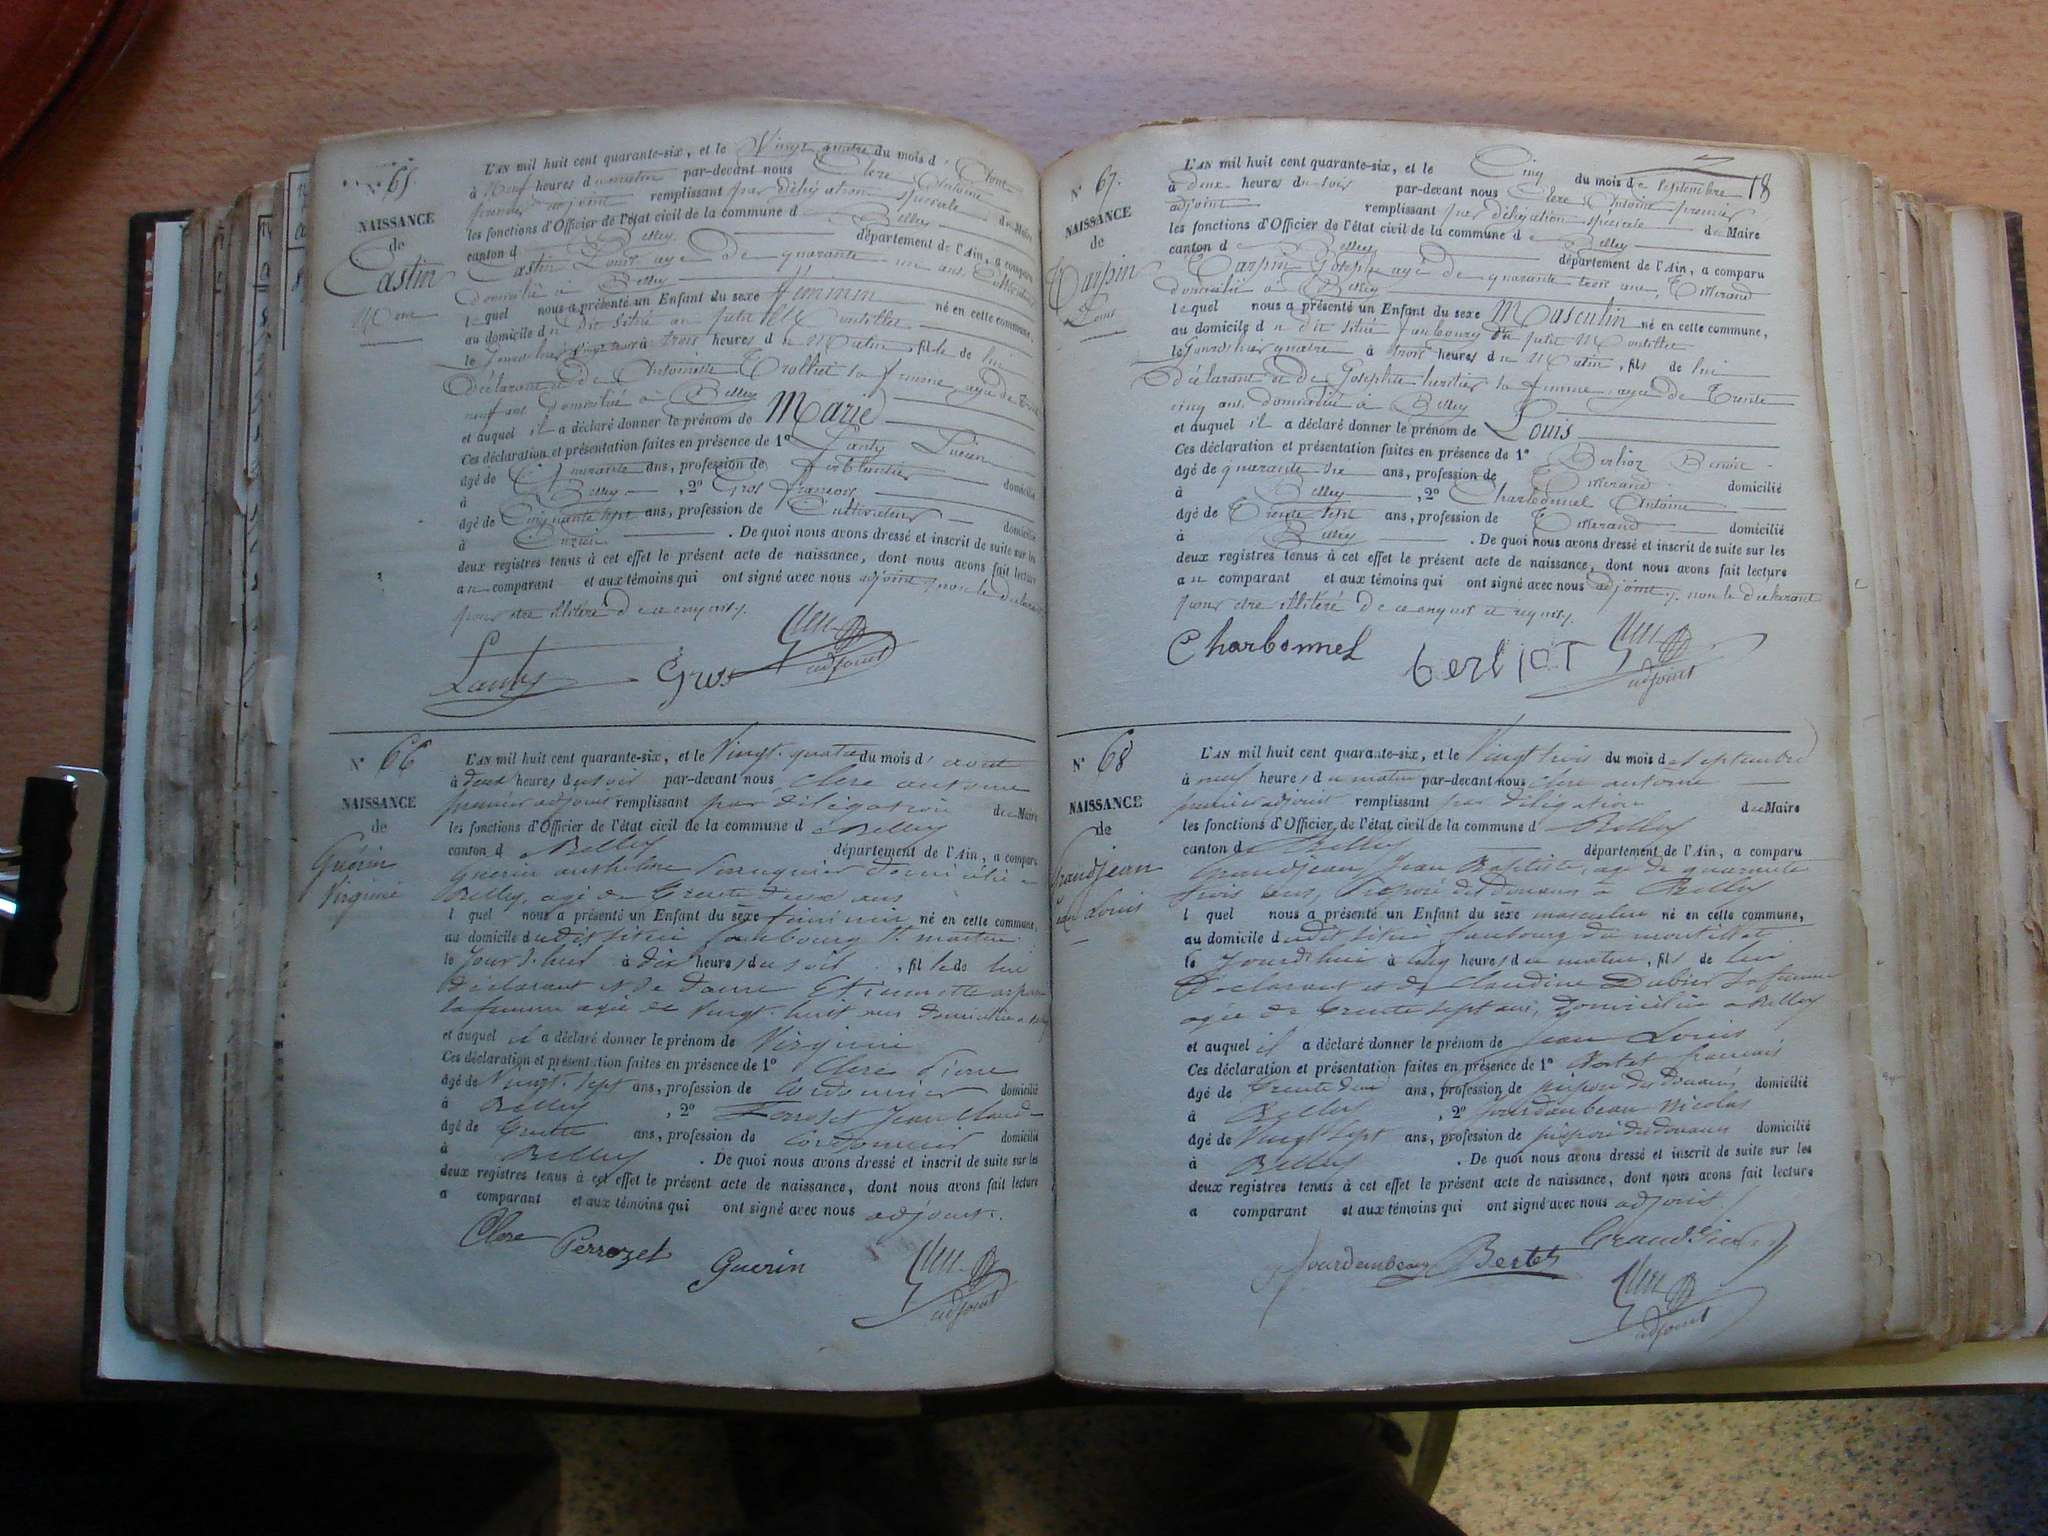 N° 65.
NAISSANCE
de
Castin
Marie
L'AN mil huit cent quarante-six, et le Vingt quatre du mois d' Aout
à Neuf heures du matin par-devant nous Clerc Antoine
premier adjoint remplissant par délégation spéciale du Maire
les fonctions d'Officier de l'état civil de la commune d Belley
canton d Belley département de l'Ain, a comparu
Castin Louis agé de quarante un ans,
domicilié à Belley
lequel nous a présenté un Enfant du sexe féminin né en cette commune,
au domicile du dit situé au petit Montillet
le à trois heures du Matin, fille de lui
Déclarant et de Antoinette Trolliet sa femme, agée de trente
neuf ans domiciliée à Belley
et auquel il a déclaré donner le prénom de Marie
Ces déclaration et présentation faites en présence de 1° Lanty
âgé de Quarante ans, profession de ferblantier domicilié
à Belley , 2° Gros françois
âgé de Cinquante sept ans, profession de Cultivateur domicilié
à . De quoi nous avons dressé et inscrit de suite sur les
deux registres tenus à cet effet le présent acte de naissance, dont nous avons fait lecture
au comparant et aux témoins qui ont signé avec nous adjoint, non le déclarant
pour être illitéré de ce enquis.
Lanty Gros Clerc
adjoint
N° 66
NAISSANCE
de
Guérin
Virginie
L'AN mil huit cent quarante-six, et le Vingt-quatre du mois d' aout
à deux heures du soir par-devant nous Clerc antoine
premier adjoint remplissant par délégation du Maire
les fonctions d'Officier de l'état civil de la commune d Belley
canton d Belley département de l'Ain, a comparu
Guérin anthelme Perruquier domicilié à
Belley, agé de trente deux ans
lequel nous a présenté un Enfant du sexe féminin, né en cette commune,
au domicile du dit situé faubourg St. martin
le à dix heures du soir, fille de lui
déclarant et de
sa femme agée de vingt-huit ans domiciliée à Belley
et auquel il a déclaré donner le prénom de Virginie
Ces déclaration et présentation faites en présence de 1° Clerc Pierre
âgé de Vingt-sept ans, profession de Cordonnier domicilié
à Belley , 2° Perrozet Jean Claude
âgé de trente ans, profession de Cordonnier domicilié
à Belley . De quoi nous avons dressé et inscrit de suite sur les
deux registres tenus à cet effet le présent acte de naissance, dont nous avons fait lecture
a comparant et aux témoins qui ont signé avec nous adjoint.
Clerc Perrozet Guerin Clerc
adjoint
18
N° 67.
NAISSANCE
de
Carpin
Louis
L'AN mil huit cent quarante-six, et le Cinq du mois de septembre
à deux heures du soir par-devant nous Clerc Antoine premier
adjoint remplissant par délégation spéciale du Maire
les fonctions d'Officier de l'état civil de la commune d Belley
canton d Belley département de l'Ain, a comparu
Carpin Joseph agé de quarante trois ans, Tisserand
domicilié à Belley
lequel nous a présenté un Enfant du sexe Masculin né en cette commune,
au domicile du dit situé faubourg du petit Montillet
le à trois heures du Matin, fils de lui
Déclarant et de Josephte héritier sa femme agée de Trente
cinq ans domiciliée à Belley
et auquel il a déclaré donner le prénom de Louis
Ces déclaration et présentation faites en présence de 1° Berlioz Benoit
âgé de quarante six ans, profession de Tisserand domicilié
à Belley , 2° Charbonnel Antoine
âgé de Trente sept ans, profession de Tisserand domicilié
à Belley . De quoi nous avons dressé et inscrit de suite sur les
deux registres tenus à cet effet le présent acte de naissance, dont nous avons fait lecture
au comparant et aux témoins qui ont signé avec nous adjoint, non le déclarant
pour être illitéré de ce enquis et requis.
Charbonnel berliot Clerc
adjoint
N° 68
NAISSANCE
de
Grandjean
Jean Louis
L'AN mil huit cent quarante-six, et le Vingt trois du mois de septembre
à neuf heures du matin par-devant nous Clerc antoine
premier adjoint remplissant par délégation du Maire
les fonctions d'Officier de l'état civil de la commune d Belley
canton d Belley département de l'Ain, a comparu
Grandjean Jean Baptiste, agé de quarante
trois ans, préposé des douanes à Belley
lequel nous a présenté un Enfant du sexe masculin né en cette commune,
au domicile du dit situé faubourg du montillet
le jourd'hui à cinq heures du matin, fils de lui
Déclarant et de Claudine Dubier sa femme
agée de trente sept ans, domiciliée à Belley
et auquel il a déclaré donner le prénom de Jean Louis
Ces déclaration et présentation faites en présence de 1° Bertet françois
âgé de trente deux ans, profession de préposé des douanes domicilié
à Belley , 2° Jourdanbeau Nicolas
âgé de vingt sept ans, profession de préposé des douanes domicilié
à Belley . De quoi nous avons dressé et inscrit de suite sur les
deux registres tenus à cet effet le présent acte de naissance, dont nous avons fait lecture
a comparant et aux témoins qui ont signé avec nous adjoint
Jourdanbeau Bertet Grandjean
Clerc
adjoint